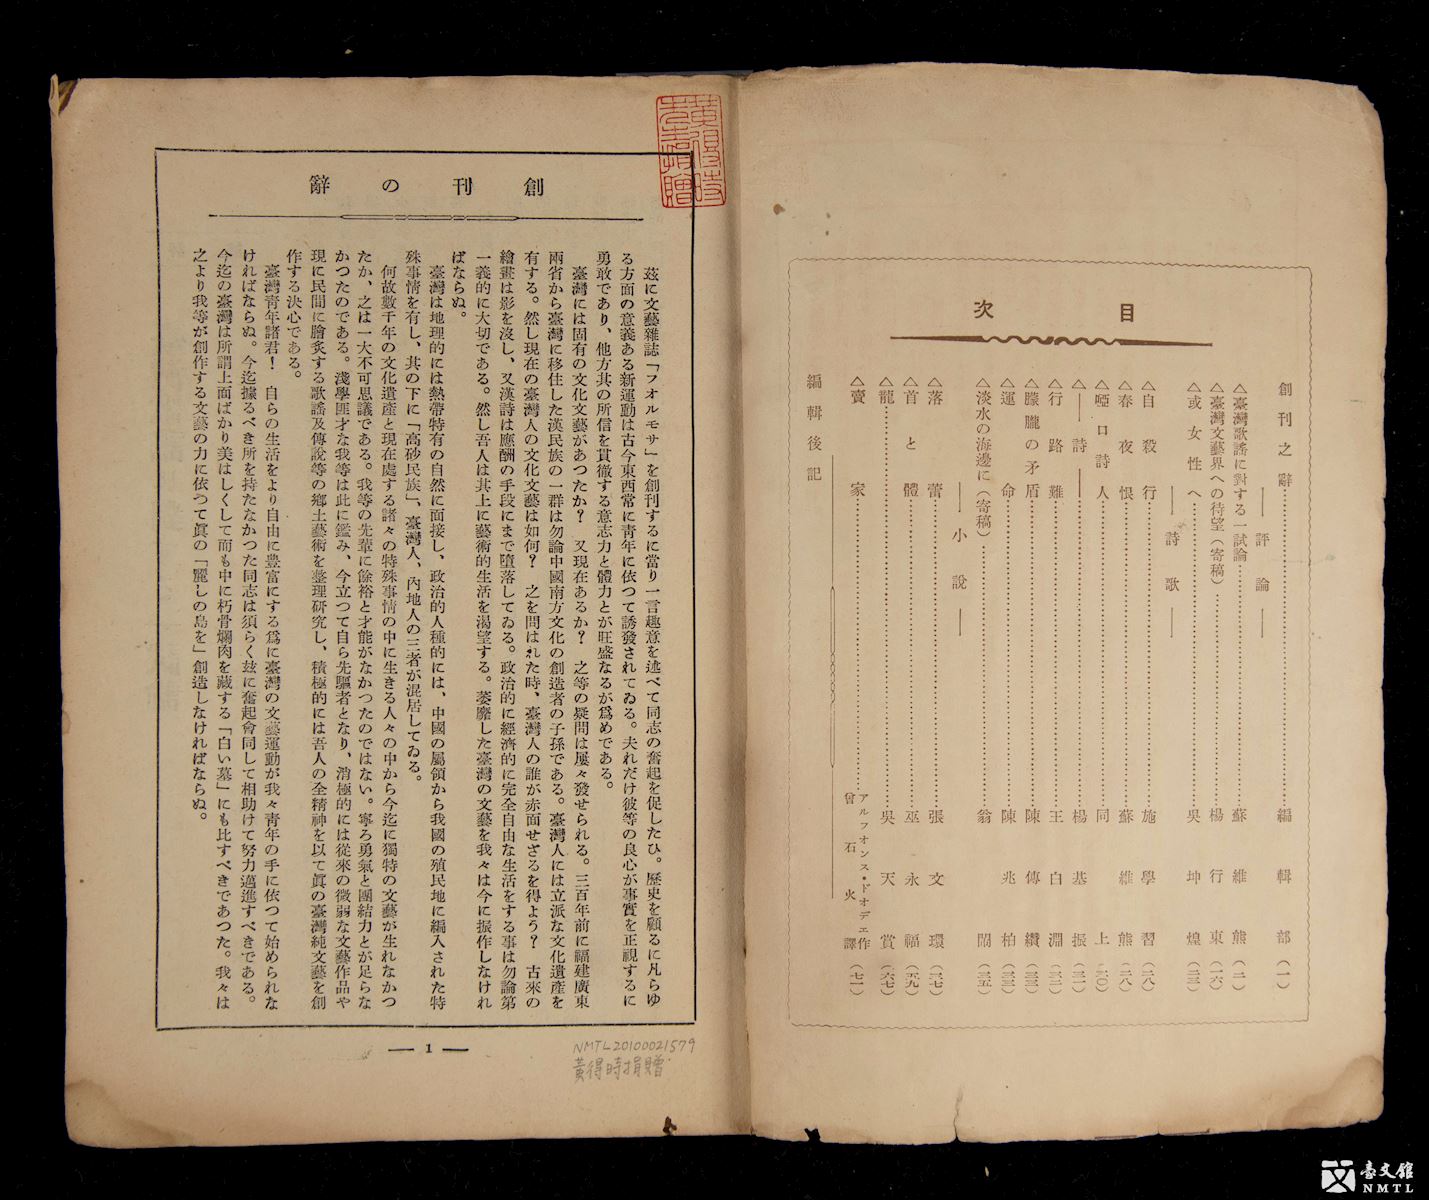 目次
創刊之辭……編輯部(一)
――評論――
△臺灣歌謠に對する一試論……蘇維熊(二)
△臺灣文藝界への待望(寄稿)……楊行東(一六)
△或女性へ……吳坤煌(二三)
――詩歌――
△自殺行……施學習(二八)
△春夜恨……蘇維熊(二八)
△啞口詩人……同上(三〇)
△――詩――……楊基振(三一)
△行路難……王白淵(三二)
△朦朧の矛盾……陳傳纘(三三)
△運命……陳兆柏(三三)
△淡水の海邊に(寄稿)……翁鬧(三五)
――小說――
△落蕾……張文環(三七)
△首と體……巫永福(五九)
△龍……吳天賞(六七)
△賣家……アルフオンス・ドオデエ作
曾石火譯(七一)
編輯後記
黃得時
先生捐贈
創刊の辭
茲に文藝雜誌「フオルモサ」を創刊するに當り一言趣意を述べて同志の奮起を促したひ。歷史を顧るに凡らゆ
る方面の意義ある新運動は古今東西常に靑年に依つて誘發されてゐる。夫れだけ彼等の良心が事實を正視するに
勇敢であり、他方其の所信を貫徹する意志力と體力とが旺盛なるが爲めである。
臺灣には固有の文化文藝があつたか? 又現在あるか? 之等の疑問は屢々發せられる。三百年前に福建廣東
兩省から臺灣に移住した漢民族の一群は勿論中國南方文化の創造者の子孫である。臺灣人には立派な文化遺產を
有する。然し現在の臺灣人の文化文藝は如何? 之を問はれた時、臺灣人の誰が赤面せざるを得よう? 古來の
繪畫は影を沒し、又漢詩は應酬の手段にまで墮落してゐる。政治的に經濟的に完全自由な生活をする事は勿論第
一義的に大切である。然し吾人は其上に藝術的生活を渴望する。萎靡した臺灣の文藝を我々は今に振作しなけれ
ばならぬ。
臺灣は地理的には熱帶特有の自然に面接し、政治的人種的には、中國の屬領から我國の殖民地に編入された特
殊事情を有し、其の下に「高砂民族」、臺灣人、內地人の三者が混居してゐる。
何故數千年の文化遺產と現在處する諸々の特殊事情の中に生きる人々の中から今迄に獨特の文藝が生れなかつ
たか、之は一大不可思議である。我等の先輩に餘裕と才能がなかつたのではない。寧ろ勇氣と團結力とが足らな
かつたのである。淺學匪才な我等は此に鑑み、今立つて自ら先驅者となり、消極的には從來の微弱な文藝作品や
現に民間に膾炙する歌謠及傳說等の鄕土藝術を整理硏究し、積極的には吾人の全精神を以て眞の臺灣純文藝を創
作する決心である。
臺灣靑年諸君! 自らの生活をより自由に豐富にする爲に臺灣の文藝運動が我々靑年の手に依つて始められな
ければならぬ。今迄據るべき所を持たなかつた同志は須らく玆に奮起會同して相助けて努力邁進すべきである。
今迄の臺灣は所謂上面ばかり美はしくして而も中に朽骨爛肉を藏する「白い墓」にも比すべきであつた。我々は
之より我等が創作する文藝の力に依つて眞の「麗しの島を」創造しなければならぬ。
― 1 ―
NMTL20100021579
黃得時捐贈
臺文館
NMTL